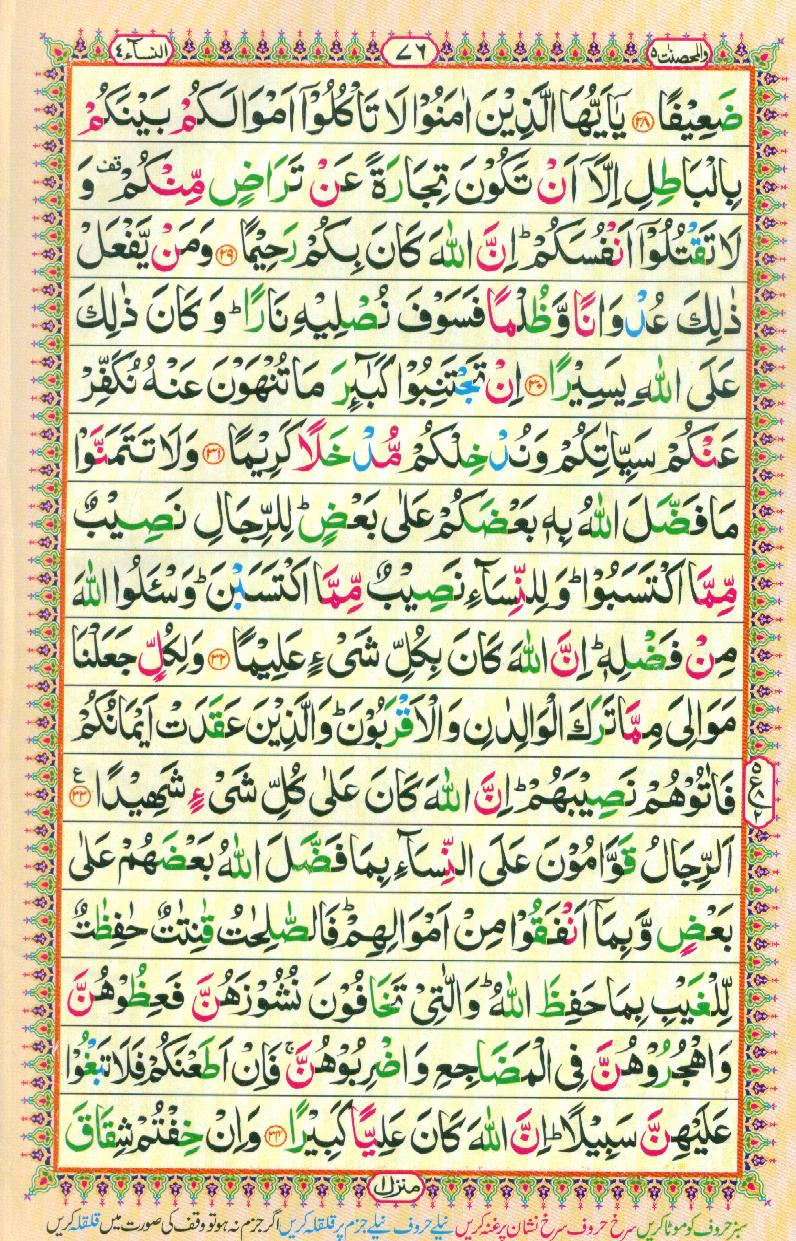 والمحصنت ۵ ۷۶ النسآء ۴
ضَعِیۡفًا ﴿۲۸﴾ یٰۤاَیُّهَا الَّذِیۡنَ اٰمَنُوۡا لَا تَاۡكُلُوۡۤا اَمۡوَالَكُمۡ بَیۡنَكُمۡ
بِالۡبَاطِلِ اِلَّاۤ اَنۡ تَكُوۡنَ تِجَارَةً عَنۡ تَرَاضٍ مِّنۡكُمۡ قف وَ
لَا تَقۡتُلُوۡۤا اَنۡفُسَكُمۡ ؕ اِنَّ اللّٰهَ كَانَ بِكُمۡ رَحِیۡمًا ﴿۲۹﴾ وَمَنۡ یَّفۡعَلۡ
ذٰلِكَ عُدۡوَانًا وَّظُلۡمًا فَسَوۡفَ نُصۡلِیۡهِ نَارًا ؕ وَكَانَ ذٰلِكَ
عَلَی اللّٰهِ یَسِیۡرًا ﴿۳۰﴾ اِنۡ تَجۡتَنِبُوۡا كَبَآئِرَ مَا تُنۡهَوۡنَ عَنۡهُ نُكَفِّرۡ
عَنۡكُمۡ سَیِّاٰتِكُمۡ وَنُدۡخِلۡكُمۡ مُّدۡخَلًا كَرِیۡمًا ﴿۳۱﴾ وَلَا تَتَمَنَّوۡا
مَا فَضَّلَ اللّٰهُ بِهٖ بَعۡضَكُمۡ عَلٰی بَعۡضٍ ؕ لِلرِّجَالِ نَصِیۡبٌ
مِّمَّا اكۡتَسَبُوۡا ؕ وَلِلنِّسَآءِ نَصِیۡبٌ مِّمَّا اكۡتَسَبۡنَ ؕ وَسۡئَلُوا اللّٰهَ
مِنۡ فَضۡلِهٖ ؕ اِنَّ اللّٰهَ كَانَ بِكُلِّ شَیۡءٍ عَلِیۡمًا ﴿۳۲﴾ وَلِكُلٍّ جَعَلۡنَا
مَوَالِیَ مِمَّا تَرَكَ الۡوَالِدٰنِ وَالۡاَقۡرَبُوۡنَ ؕ وَالَّذِیۡنَ عَقَدَتۡ اَیۡمَانُكُمۡ
فَاٰتُوۡهُمۡ نَصِیۡبَهُمۡ ؕ اِنَّ اللّٰهَ كَانَ عَلٰی كُلِّ شَیۡءٍ شَهِیۡدًا ﴿۳۳﴾ ع
اَلرِّجَالُ قَوَّامُوۡنَ عَلَی النِّسَآءِ بِمَا فَضَّلَ اللّٰهُ بَعۡضَهُمۡ عَلٰی
بَعۡضٍ وَّبِمَاۤ اَنۡفَقُوۡا مِنۡ اَمۡوَالِهِمۡ ؕ فَالصّٰلِحٰتُ قٰنِتٰتٌ حٰفِظٰتٌ
لِّلۡغَیۡبِ بِمَا حَفِظَ اللّٰهُ ؕ وَالّٰتِیۡ تَخَافُوۡنَ نُشُوۡزَهُنَّ فَعِظُوۡهُنَّ
وَاهۡجُرُوۡهُنَّ فِی الۡمَضَاجِعِ وَاضۡرِبُوۡهُنَّ ۚ فَاِنۡ اَطَعۡنَكُمۡ فَلَا تَبۡغُوۡا
عَلَیۡهِنَّ سَبِیۡلًا ؕ اِنَّ اللّٰهَ كَانَ عَلِیًّا كَبِیۡرًا ﴿۳۴﴾ وَاِنۡ خِفۡتُمۡ شِقَاقَ
منزل ۱
سبز حروف کو موٹا کریں سرخ حروف سرخ نشان پر غنہ کریں نیلے حروف نیلے جزم پر قلقلہ کریں اگر جزم نہ ہو تو وقف کی صورت میں قلقلہ کریں